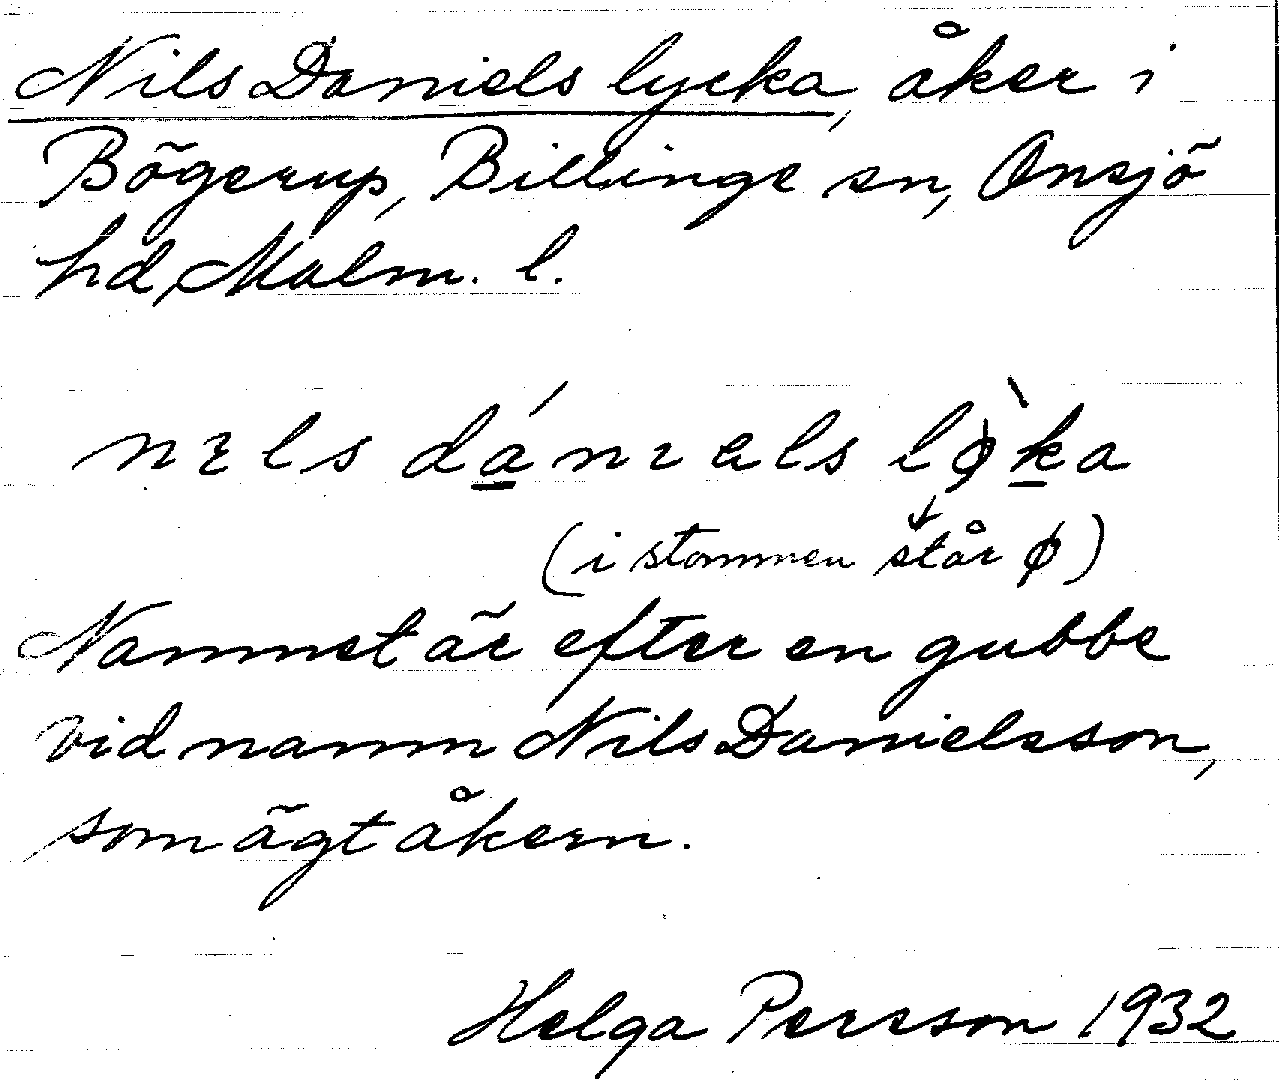 Nils Daniels lycka, åker i
Bögerup, Billinge sn, Onsjö
hd, Malm. l.
nɪls dánɪəls lø̀ka
(i stommen står ø)
Namnet är efter en gubbe
vid namn Nils Danielsson,
som ägt åkern.
Helga Persson 1932